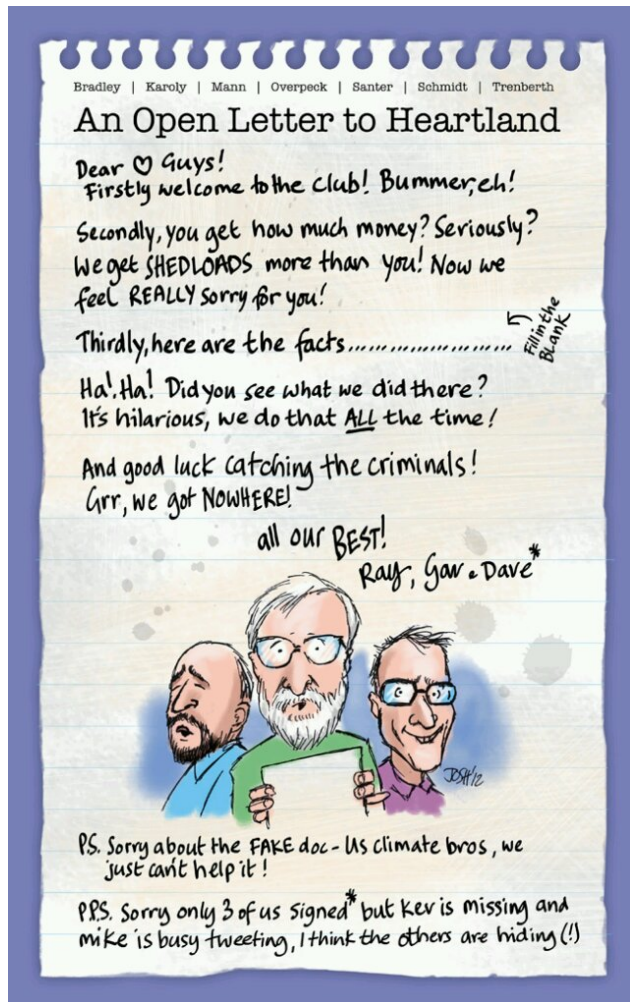 Bradley | Karoly | Mann | Overpeck | Santer | Schmidt | Trenberth
An Open Letter to Heartland
Dear ♡ Guys!
Firstly welcome to the club! Bummer, eh!
Secondly, you get how much money? Seriously?
We get SHEDLOADS more than you! Now we
feel REALLY sorry for you!
Thirdly, here are the facts........................
Fill in the
BLANK
Ha! Ha! Did you see what we did there?
It's hilarious, we do that ALL the time!
And good luck catching the criminals!
Grr, we got NOWHERE!
all our BEST!
Ray, Gav & Dave*
JOSH'12
PS. Sorry about the FAKE doc - Us climate bros, we
just can't help it!
P.P.S. Sorry only 3 of us signed* but Kev is missing and
mike is busy tweeting, I think the others are hiding (!)